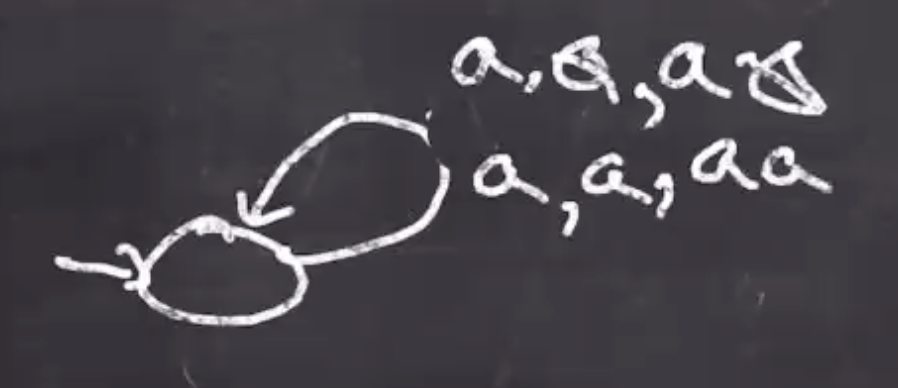 a, , a
a, a, aa